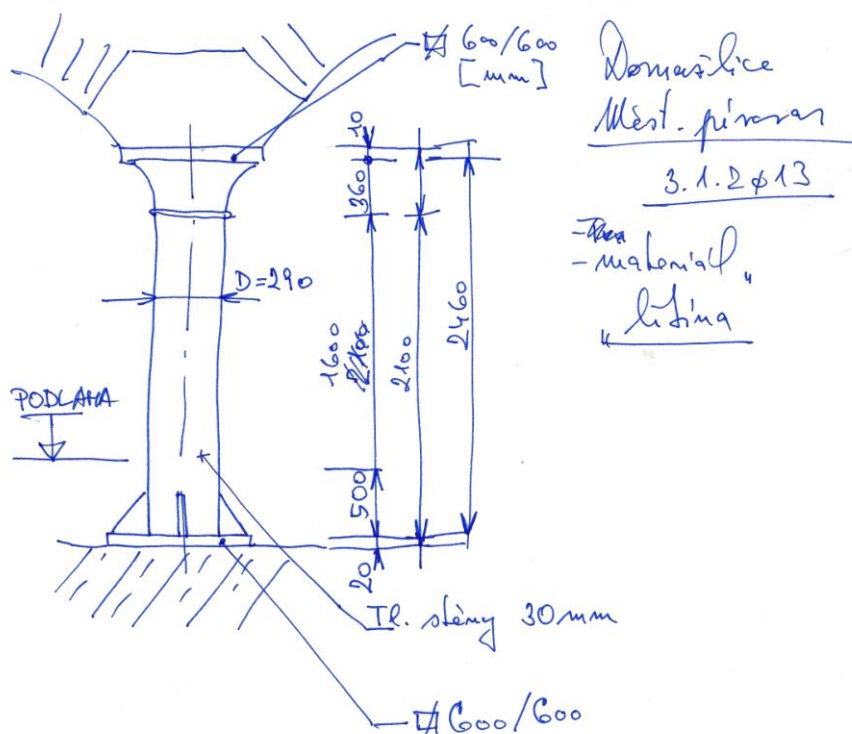 ⌀ 600/600
[mm]
Domažlice
Měst. pivovar
3.1.2013
- materiál
"litina"
10
360
D=290
1600
2100
2100
2460
PODLAHA
500
20
Tl. stěny 30mm
600/600